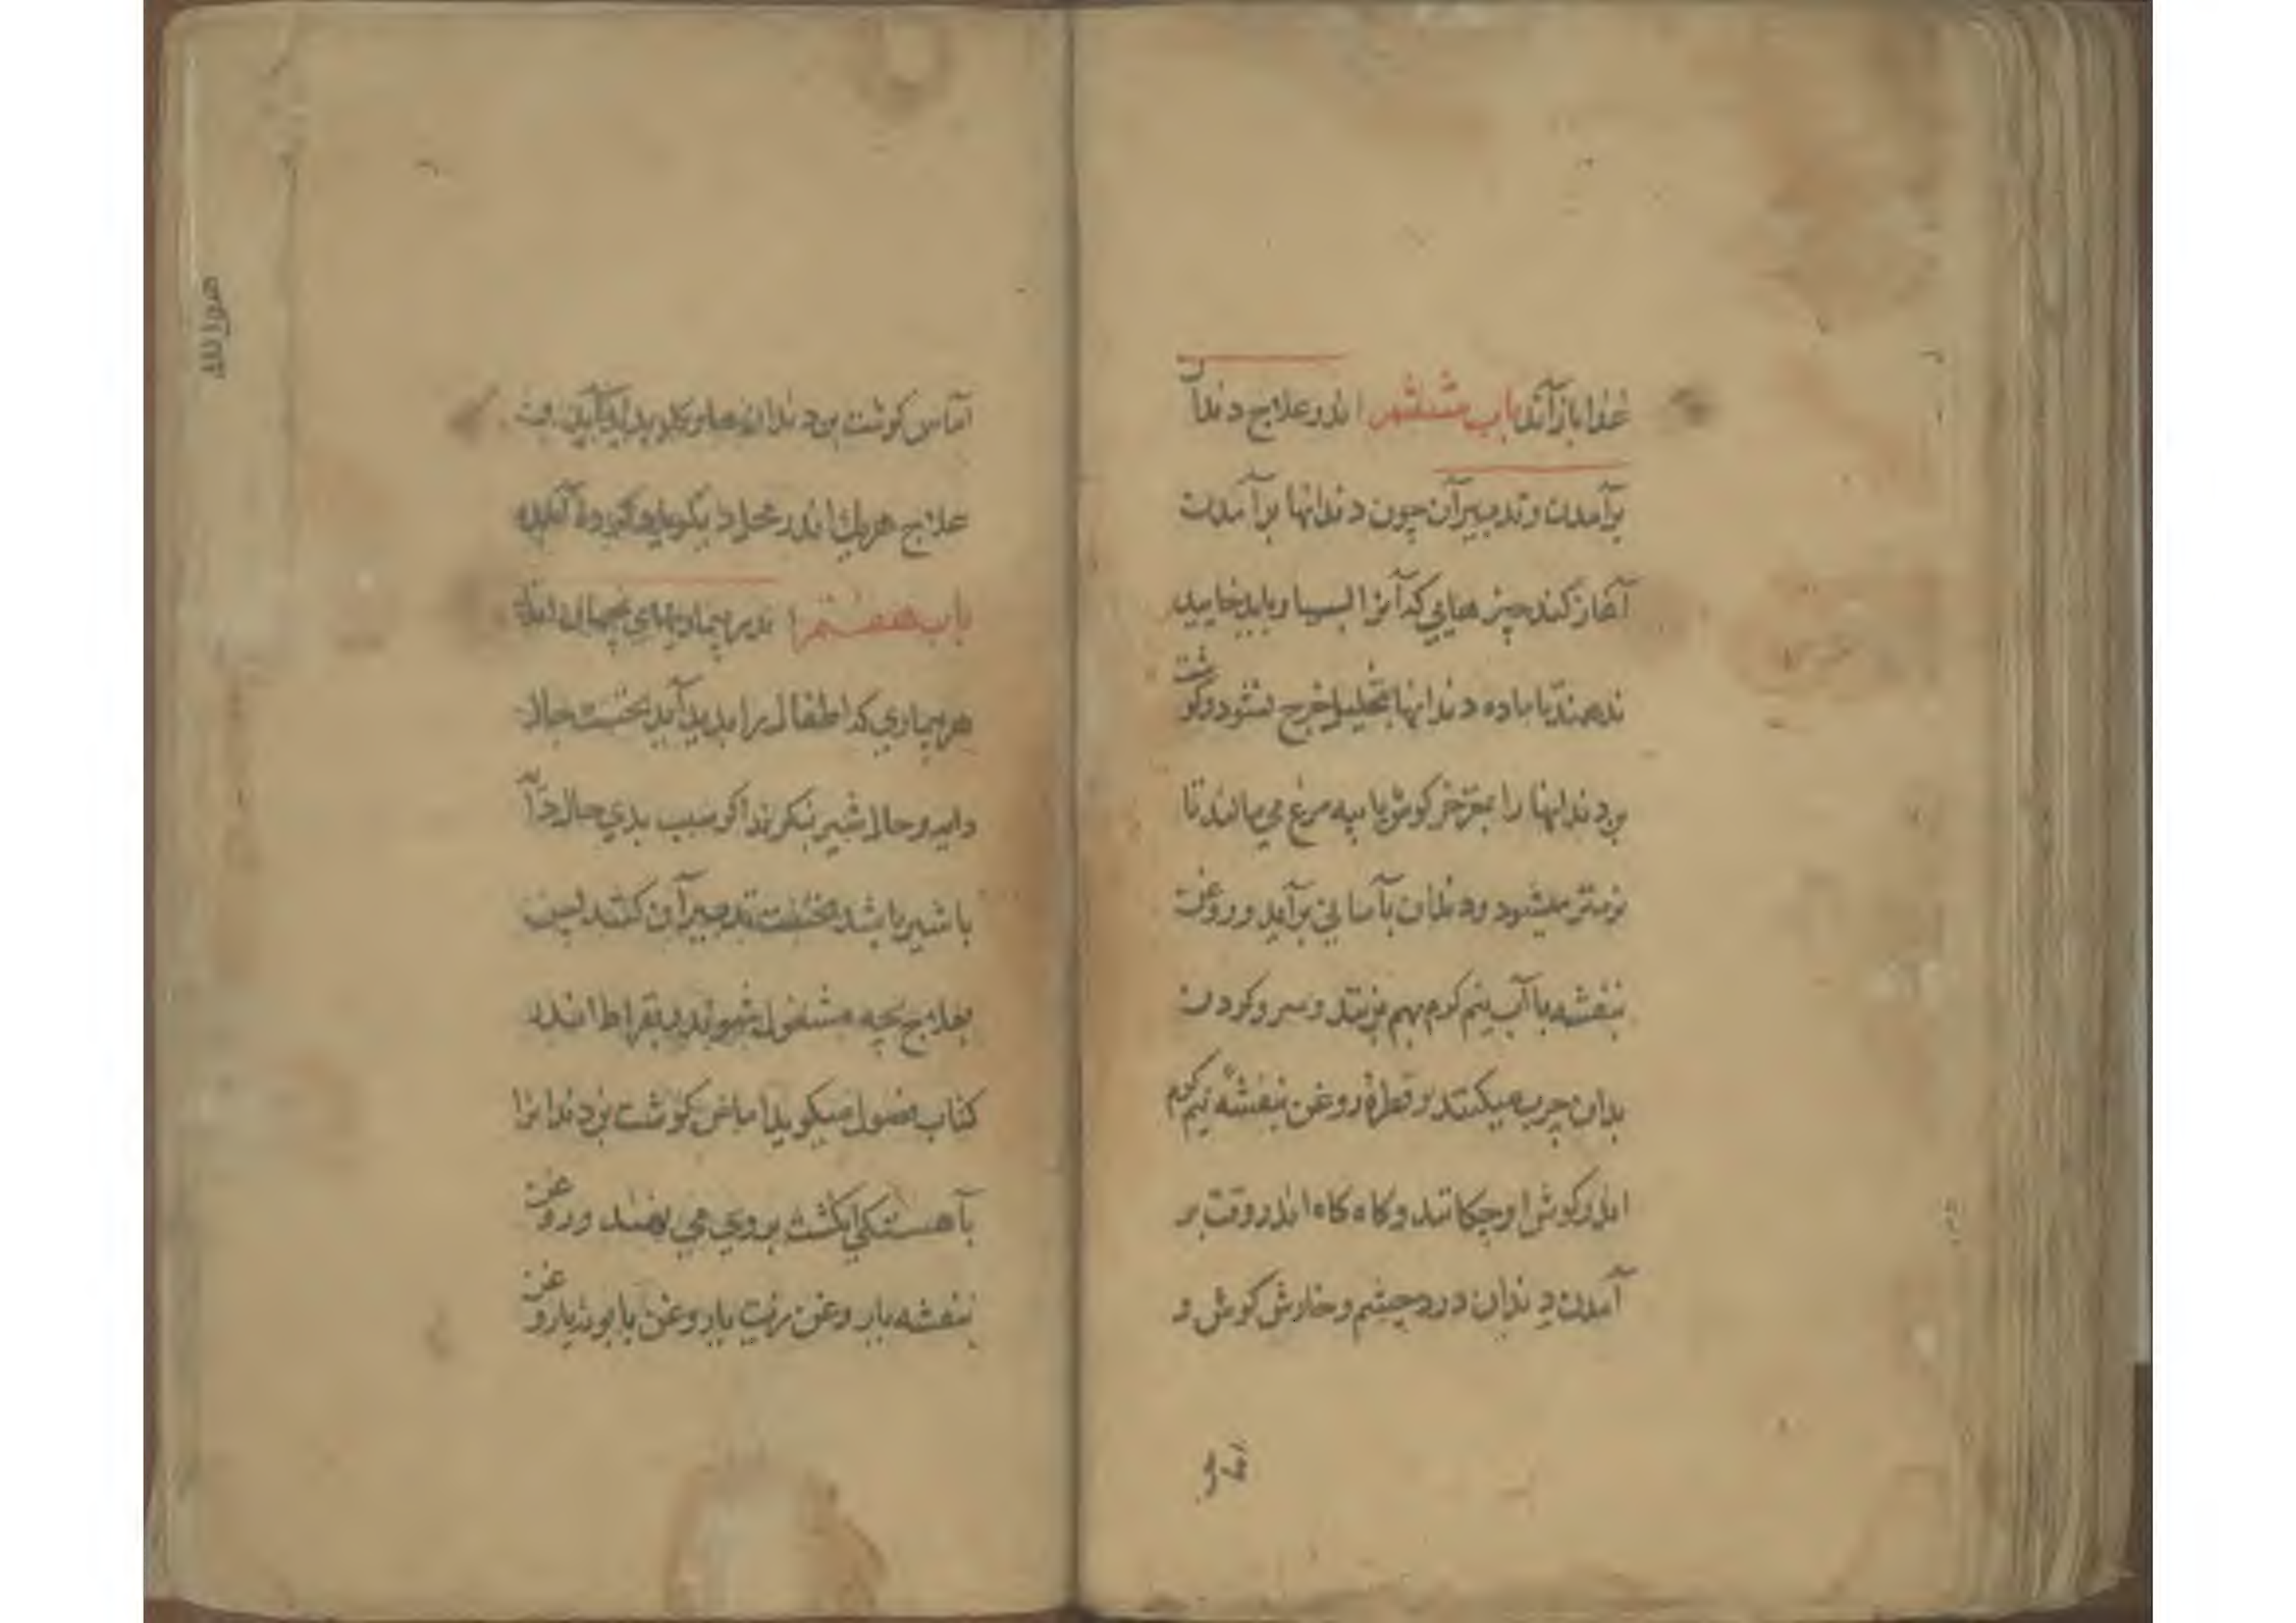 غذا باز آید باب ششم اندر علاج دندان
برآمدن و تدبیر آن چون دندانها برآمدن
آغاز کند چیز هایی که آنرا بسیار باید خایید
ندهند تا ماده دندانها بتحلیل خرج نشود و گوشت
بن دندانها را بمغز خرگوش یا پیه مرغ می مالند تا
نرمتر میشود و دندان بآسانی برآید و روغن
بنفشه با آب نیم گرم بهم بزنند و سر و گردن
بدان چرب میکنند و قطرهٔ روغن بنفشه نیم گرم
اندر گوش او چکانند و گاه گاه اندر وقت بر
آمدن دندان درد چشم و خارش گوش و
آماس گوشت بن دندان پدید آید
علاج هریک اندر محل
باب هفتم اندر بیماریهای بچگان
هر بیماری که اطفال را پدید آید نخست حال
دایه و حال شیر بنگرند اگر سبب بدی حال
یا شیر باشد نخست تدبیر آن کنند پس
بعلاج بچه مشغول شوند و بقراط اندر
کتاب فصول میگوید آماس گوشت بن دندانرا
بآهستگی انگشت بروی می نهند و روغن
بنفشه یا روغن زیت یا روغن بابونه یا روغن